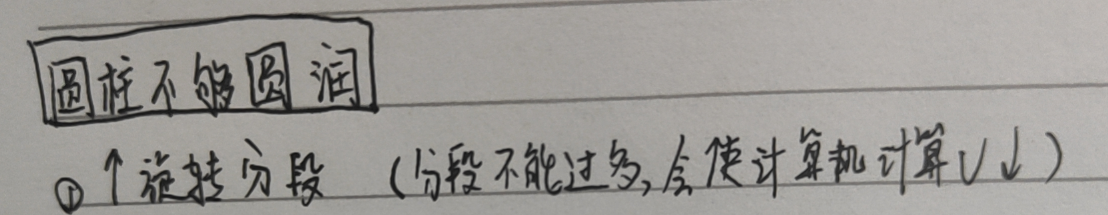 圆柱不够圆润
① ↑旋转分段 (分段不能过多,会使计算机计算V↓)